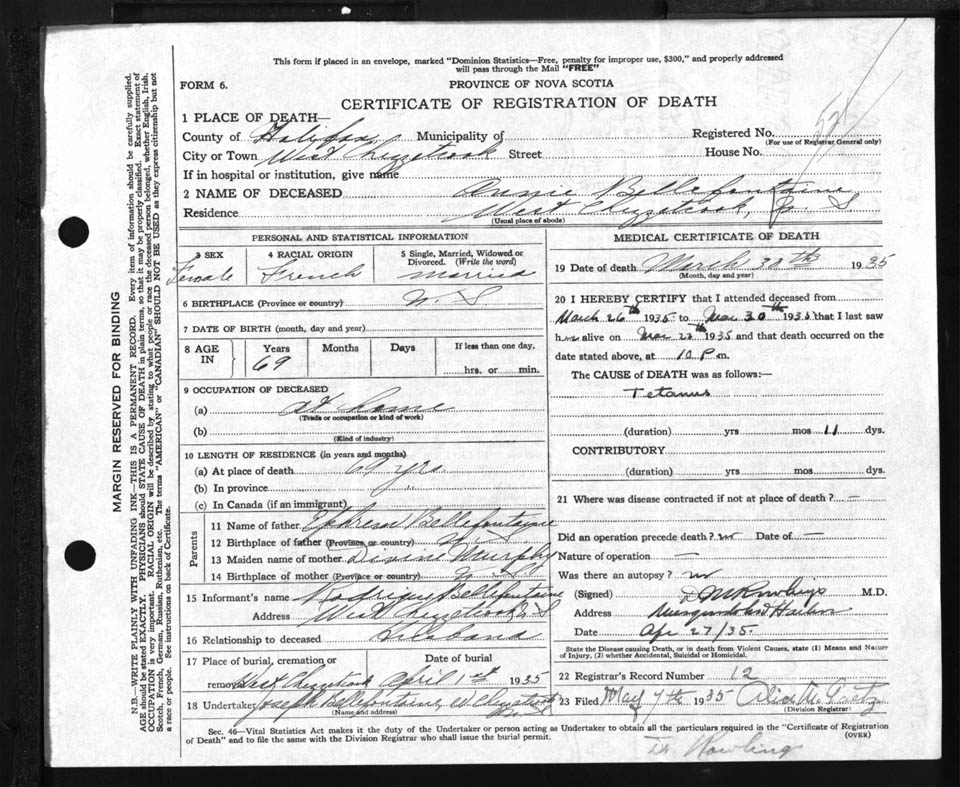 This form if placed in an envelope, marked "Dominion Statistics—Free, penalty for improper use, $300," and properly addressed
will pass through the Mail "FREE"
FORM 6.
PROVINCE OF NOVA SCOTIA
CERTIFICATE OF REGISTRATION OF DEATH
1 PLACE OF DEATH—
County of Halifax Municipality of Registered No.
(For use of Registrar General only)
City or Town West Chezzetcook Street House No.
If in hospital or institution, give name
2 NAME OF DECEASED Annie Bellefontaine
Residence West Chezzetcook, N. S.
(Usual place of abode)
PERSONAL AND STATISTICAL INFORMATION
3 SEX 4 RACIAL ORIGIN 5 Single, Married, Widowed or
Divorced. (Write the word)
Female French married
6 BIRTHPLACE (Province or country) N. S
7 DATE OF BIRTH (month, day and year)
8 AGE IN Years Months Days If less than one day,
69 hrs. or min.
9 OCCUPATION OF DECEASED
(a) At home
(Trade or occupation or kind of work)
(b)
(Kind of industry)
10 LENGTH OF RESIDENCE (in years and months)
(a) At place of death 69 yrs
(b) In province
(c) In Canada (if an immigrant)
Parents
11 Name of father Bellefontaine
12 Birthplace of father (Province or country) N. S
13 Maiden name of mother Murphy
14 Birthplace of mother (Province or country) N. S
15 Informant's name Bellefontaine
Address West Chezzetcook N S
16 Relationship to deceased Husband
17 Place of burial, cremation or Date of burial
removal West Chezzetcook April 1st 1935
18 Undertaker Joseph Bellefontaine, W. Chezzetcook
(Name and address) N. S
MEDICAL CERTIFICATE OF DEATH
19 Date of death March 30th 1935
(Month, day and year)
20 I HEREBY CERTIFY that I attended deceased from
March 26th 1935 to Mar 30th 1935 that I last saw
her alive on Mar 1935 and that death occurred on the
date stated above, at 10 P.m.
The CAUSE of DEATH was as follows:—
Tetanus
(duration) yrs mos 11 dys.
CONTRIBUTORY
(duration) yrs mos dys.
21 Where was disease contracted if not at place of death? —
Did an operation precede death? no Date of —
Nature of operation —
Was there an autopsy? no
(Signed) Rowlings M.D.
Address Musquodoboit Harbor
Date Apr 27/35.
State the Disease causing Death, or in death from Violent Causes, state (1) Means and Nature
of Injury, (2) whether Accidental, Suicidal or Homicidal.
22 Registrar's Record Number 12
23 Filed May 7th 1935
(Division Registrar)
Sec. 46—Vital Statistics Act makes it the duty of the Undertaker or person acting as Undertaker to obtain all the particulars required in the "Certificate of Registration
of Death" and to file the same with the Division Registrar who shall issue the burial permit.
(OVER)
Dr. Rowlings
MARGIN RESERVED FOR BINDING
N.B.—WRITE PLAINLY WITH UNFADING INK—THIS IS A PERMANENT RECORD. Every item of information should be carefully supplied.
AGE should be stated EXACTLY. PHYSICIANS should STATE CAUSE OF DEATH in plain terms, so that it may be properly classified. Exact statement of
OCCUPATION is very important. RACIAL ORIGIN will be described by stating to what people or race the deceased person belonged, whether English, Irish,
Scotch, French, German, Russian, Ruthenian, etc. The terms "AMERICAN" or "CANADIAN" SHOULD NOT BE USED as they express citizenship but not
a race or people. See instructions on back of Certificate.